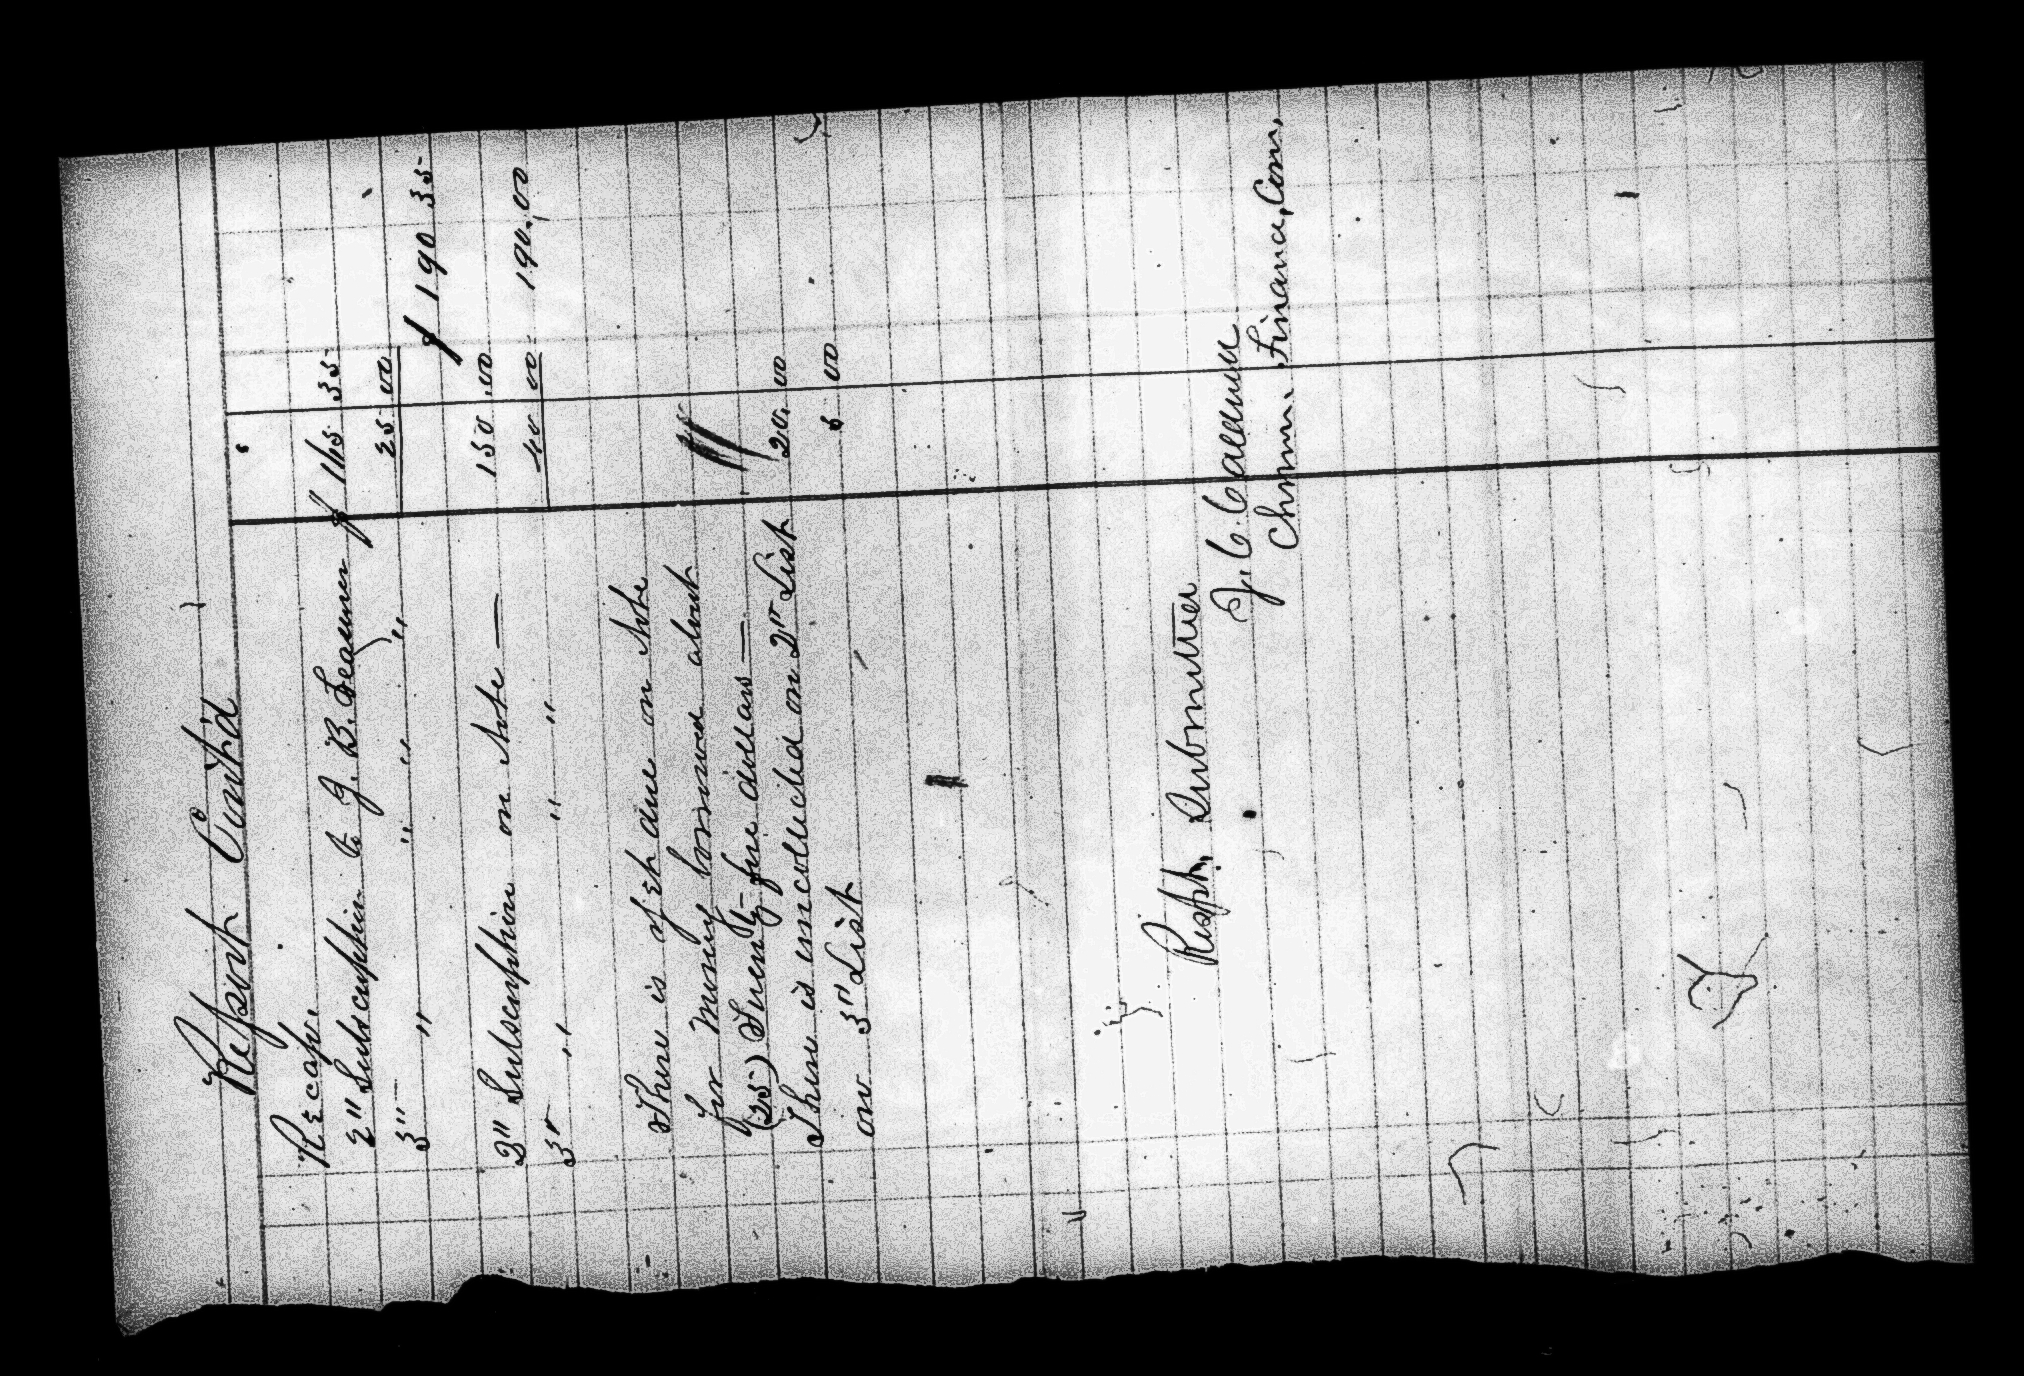 Report Cont'd
Recap.
2" Subscription to J. B. Seaman $ 165 35
3" " " " " 25 00
$ 190 35
2" Subscription on Note — 150.00
3" " " " 40 00 190.00
There is yet due on Note
for money borrowed about
(25) Twenty-five dollars —
There is uncollected on 2" List 20.00
on 3" List 5 00
Respt. Submitted
J. C.
Chrmn. Finance, Com.